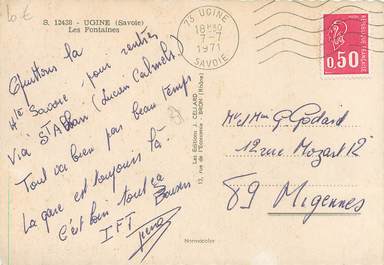 10 €
S. 12438 - UGINE (Savoie)
Les Fontaines
73 UGINE
18H00
7-7
1971
SAVOIE
RÉPUBLIQUE FRANÇAISE
0,50
POSTES
Quittons la
Hte Savoie pour rentrer
via St Alban (Lucien Calmels).
Tout va bien par beau temps
La gare est toujours là.
C'est loin tout ça
Bouxus
IFT
Les Editions J. CELLARD
13, rue de l'Economie - BRON (Rhône)
Normacolor
Mr et Mme G Godard
12 rue Mozart 12
89 Migennes